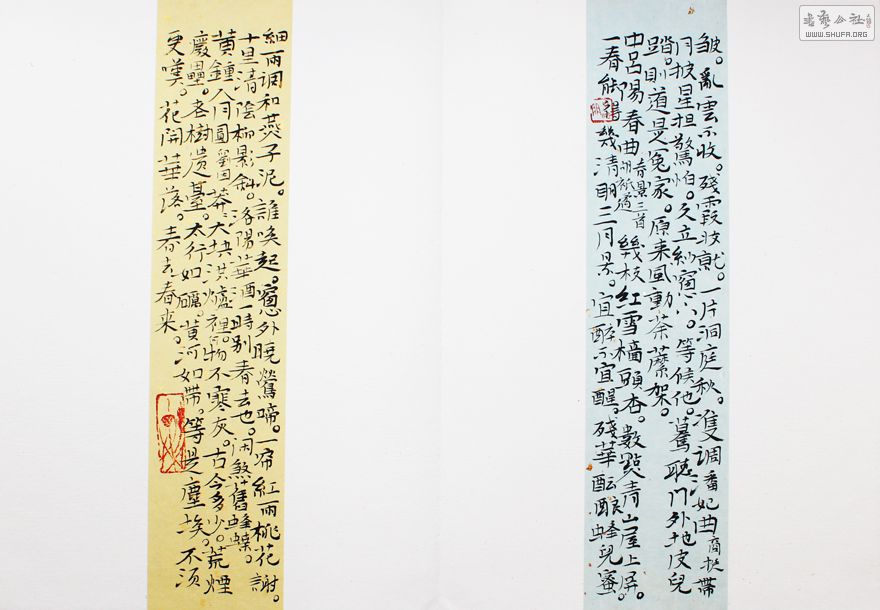 皱。亂雲不收。殘霞妝就。一片洞庭秋。雙調潘妃曲商挺帶
月披星担驚怕。久立紗窗下。等候他。驀聽門外地皮兒
踏。則道是冤家。原来風動荼蘼架。
中呂陽春曲春景三首胡祗遹幾枝紅雪墻頭杏。數點青山屋上屏。
一春能得幾清明三月景。宜醉不宜醒。殘華酝酿蜂兒蜜。
細雨調和燕子泥。誰唤起。窗外曉鶯啼。一帘紅雨桃花謝。
十里清陰柳影斜。洛陽華酒一時别。春去也。闲煞舊蜂蝶。
黄鍾人月圓劉因茫々大块洪爐裡。何物不寒灰。古今多少。荒煙
廢壘。老樹遗臺。太行如礪。黄河如帶。等是塵埃。不须
更嘆。花開華落。春去春来。
書藝公社
WWW.SHUFA.ORG